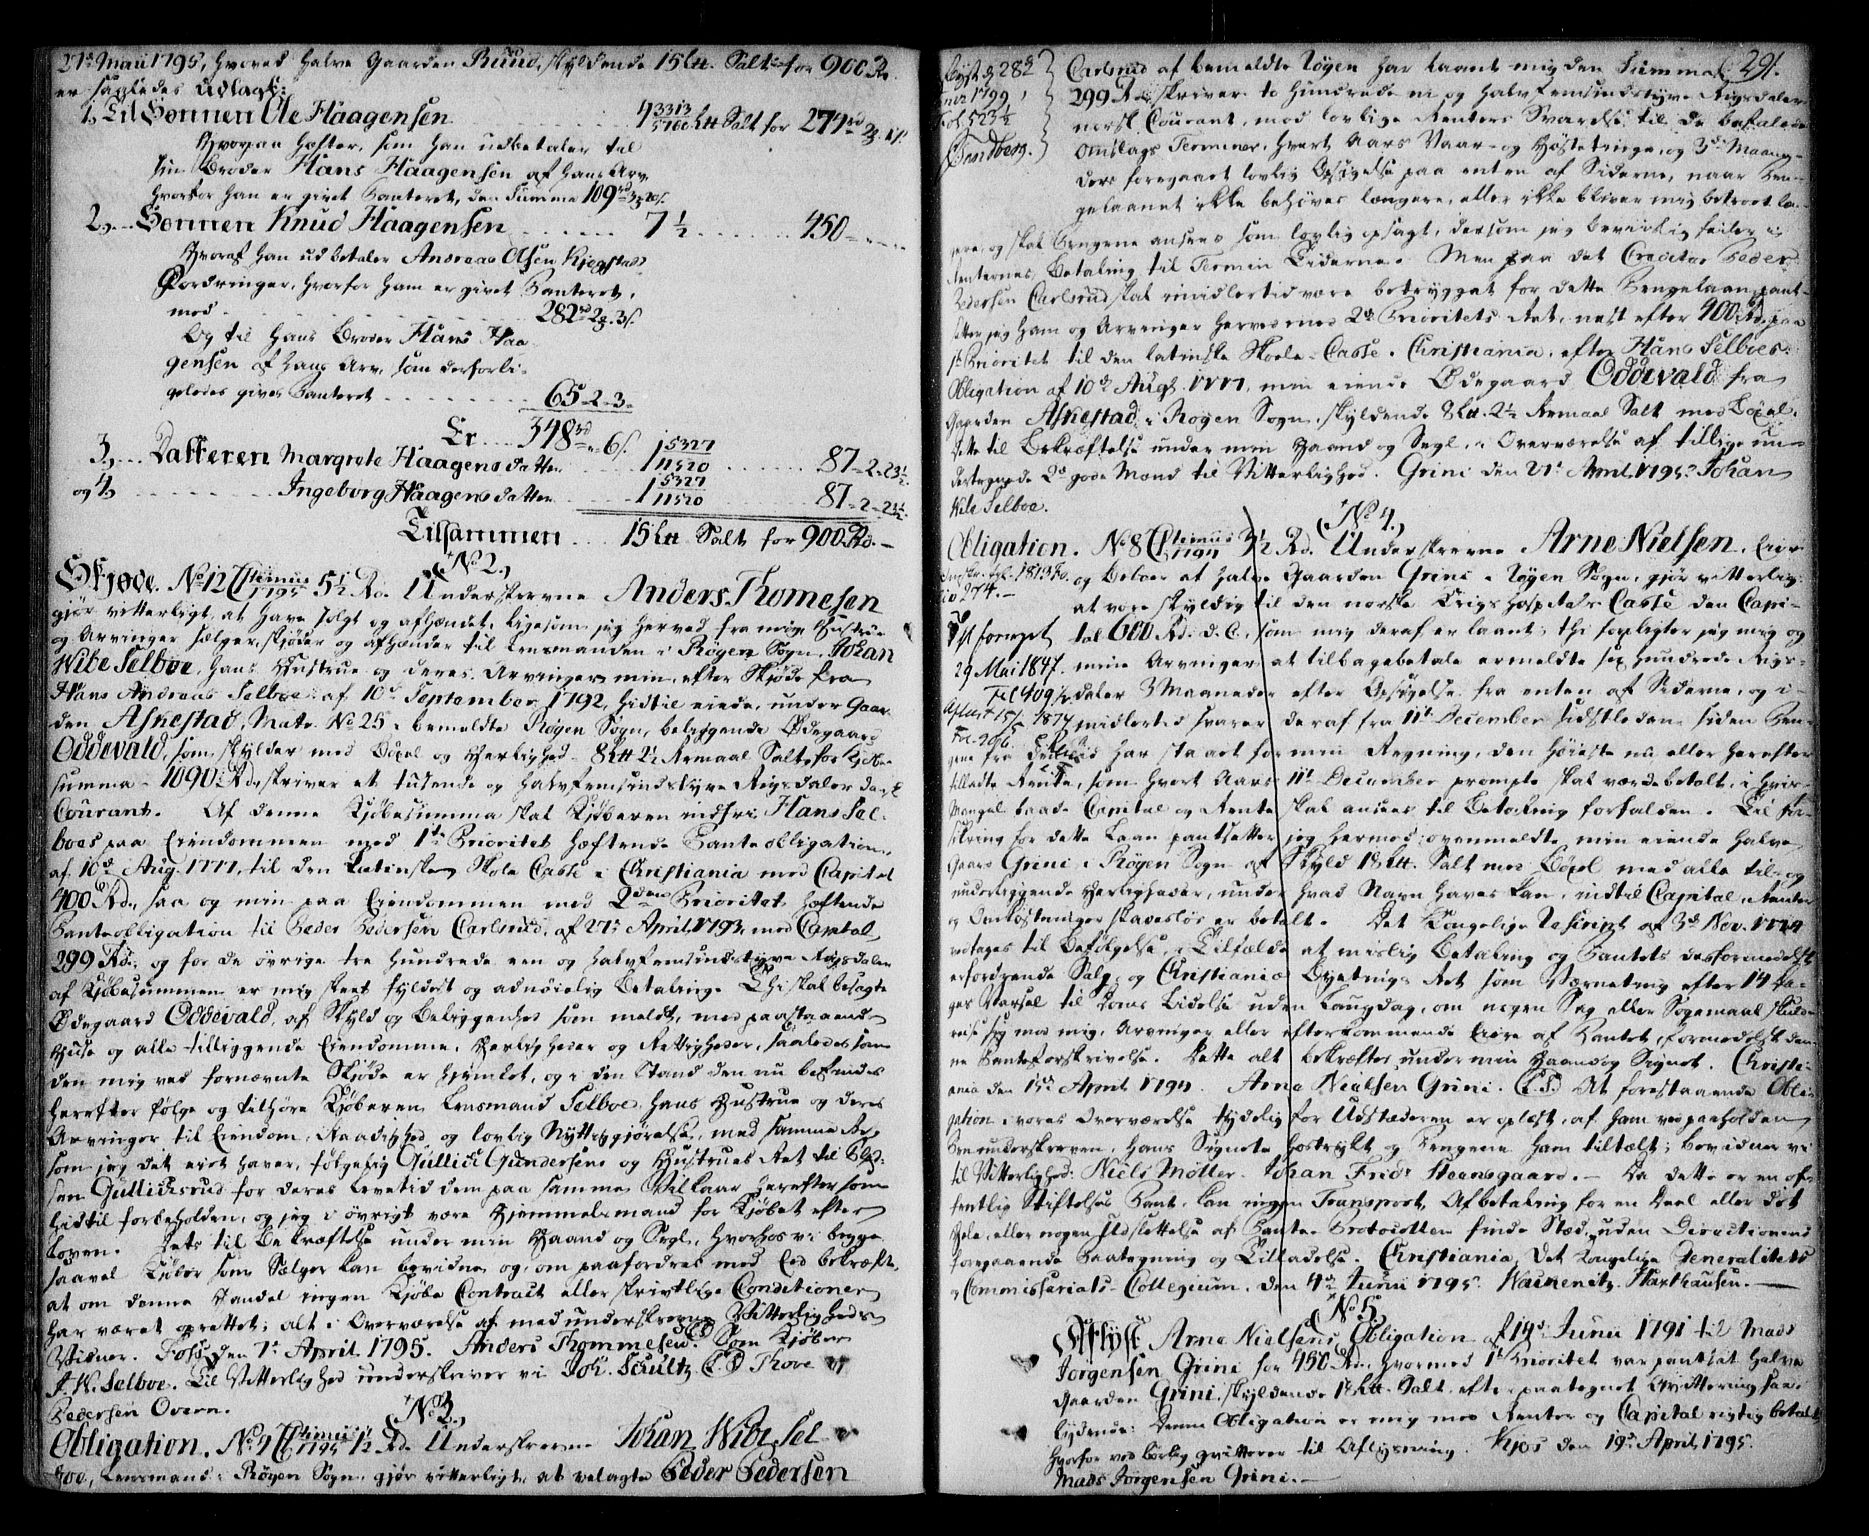 27de Maii 1795, hvorved halve Gaarden Rüüd, skyldende 15 Ltt. Salt for 900 Rd.
er saaledes Udlagt:
1, Til Sønnen Ole Haagensen 4 3313/5760 Ltt Salt for 274 rd
hvorpaa hæfter, som han udbetaler til
sin Broder Hans Haagensen af hans Arv
hvorfor han er givet Panteret, den Summa 109 rd
2, Sønnen Knud Haagensen 7 1/2 450
hvoraf han udbetaler Andreas Olsen
Fordringer, hvorfor ham er givet Panteret,
med 282 rd 2 3 s.
Og til hans Broder Hans Haa-
gensen af hans Arv, som derforli-
geledes gives Panteret 65 - 2 - 3.
Er 348 rd - 6 s.
3, Datteren Margrete Haagensdatter 1 5327/11520 87 - 2 - 23 1/2
og 4, Ingeborg Haagensdatter 1 5327/11520 87 - 2 - 23 1/2
Tilsammen 15 Ltt Salt for 900 Rd.
No 2.
Skjøde. No 12 1795 5 1/2 Rd. Underskrevne Anders Thomesen
gjør vitterligt, at have solgt og afhændet, ligesom jeg herved fra mig, Hustrue
og Arvinger sælger, skjøder og afhænder til Lensmanden i Røgen Sogn, Johan
Wibe Selboe, hans Hustrue og deres Arvinger min, efter Skjøde fra
Hans Andreas Selboe af 10de September 1792, hidtil eiende, under Gaar-
den Askestad, Matr. No 25 i bemeldte Røgen Sogn, beliggende Ødegaard
Oddevald, som skylder med Bøxel og Herlighed 8 Ltt 2 1/2 Remaal Salt for Kjøbe-
summa 1090 Rd. skriver et tusende og halvfemsindstyve Rigsdaler dansk
Courant. Af denne Kjøbesumma skal Kjøberen indfri Hans Sel-
boes paa Eiendommen med 1ste Prioritet hæftende Panteobligation,
af 10de Aug. 1777, til den Latinske Skole Casse i Christiania med Capital
400 Rd., saa og min paa Eiendommen med 2den Prioritet hæftende
Panteobligation til Peder Pedersen Carlsrud, af 27de April 1793, med Capital
299 Rd. og for de øvrige tre hundrede een og halvfemsindstyve Rigsdaler
af Kjøbesummen er mig skeet fyldest og adnøielig Betaling. Thi skal besagte
Ødegaard Oddevald, af Skyld og Beliggenhed som meldt, med paastaaende
Huse og alle tilliggende Eiendomme, Herligheder og Rettigheder, saaledes som
den mig ved fornævnte Skjøde er hjemlet, og i den Stand den nu befindes
herefter følge og tilhøre Kjøberen Lensmand Selboe, hans Hustrue og deres
Arvinger til Eiendom, Raadighed og lovlig Nyttiggjørelse, med samme Ret
som jeg det eiet haver, følgelig Gullich Gundersens og Hustrues Ret til Plad-
sen Gullichsrud for deres Levetid dem paa samme Vilkaar herefter som
hidtil forbeholden, og jeg i øvrigt være Hjemmelsmand for Kjøbet efter
Loven. Dets til Bekræftelse under min Haand og Segl, hvorhos vi begge
saavel Kjøber som Sælger kan bevidne og, om paafordres med Eed bekræfte,
at om denne Handel ingen Kjøbe Contract eller skriftlige Conditioner
har været oprettet; alt i Overværelse af medunderskrevne Vitterligheds
Vidner. Foss, den 7de April 1795. Anders Thommesen. Som Kjøber
J. W. Selboe. Til Vitterlighed underskriver vi Joh. Schultz Thore
Pedersen Overn.
No 3.
Obligation. No 9 1795 1 1/2 Rd. Underskrevne Johan Wibe Sel-
boe, Lensmand i Røgen Sogn, gjør vitterligt, at velagte Peder Pedersen
291.
Carlsrud af bemeldte Røgen har laant mig den Summa
299 Rd. skriver to hundrede ni og halvfemsindstyve Rigsdaler
norsk Courant, mod lovlige Renters Svarelse til de befalede
Omslags Terminer, hvert Aars Vaar- og Høstetinge, og 3de Maane-
ders foregaaet lovlig Opsigelse paa enten af Siderne, naar Pen-
gelaanet ikke behøves længere, eller ikke bliver mig betroet læn-
gere, og skal Pengene ansees som lovlig opsagt, dersom jeg bevislig feiler i
Renternes Betaling til Termin Tiderne. Men paa det Creditor Peder
Pedersen Carlsrud skal imidlertid være betrygget for dette Pengelaan, pant-
sætter jeg ham og Arvinger herved med 2den Prioritets Ret, næst efter 400 Rd. paa
1ste Prioritet til den latinske Skole-Casse i Christiania, efter Hans Selboes
Obligation af 10de Augs. 1777, min eiende Ødegaard Oddevald fra
Gaarden Askestad, i Røgen Sogn, skyldende 8 Ltt. 2 1/2 Remaal Salt med Bøxel.
Dette til Bekræftelse under min Haand og Segl, i Overværelse af tillige un-
destegnede 2de gode Mænd til Vitterlighed. Grini den 27de April 1795. Johan
Wibe Selboe.
Fol. 523 1/2
Sandberg.
No 4.
Obligation. No 8 1794 3 1/2 Rd. Underskrevne Arne Nielsen, Eier
og Beboer af halve Gaarden Grini i Røgen Sogn, gjør vitterlig:
at være skyldig til den norske Krigs hospitals Casse den Capi-
tal 600 Rd. d. C., som mig deraf er laant; thi forpligter jeg mig og
mine Arvinger at tilbagebetale ermeldte sex hundrede Rigs-
daler 3 Maaneder efter Opsigelse fra enten af Siderne, og i-
midlertid svarer deraf fra 11te December sidstleden, siden Pen-
gene fra har staaet for min Regning, den høieste nu eller herefter
tilladte Rente, som hvert Aars 11te December prompte skal være betalt, i hvis
Mangel baade Capital og Rente skal ansees til Betaling forfalden. Til For-
sikring for dette Laan pantsætter jeg hermed ovenmeldte min eiende halve
Gaard Grini i Røgen Sogn af Skyld 18 Ltt. Salt med Bøxel med alle til- og
underliggende Herligheder, under hvad Navn haves kan, indtil Capital, Renter
og Omkostninger skadesløs er betalt. Det Kongelige Rescript af 3de Nov. 1774
vedtages til Befølgelse i Tilfælde at mislig Betaling og Pantets desformedelst
erfordrende Salg, og Christiania Byetings Ret som Værneting efter 14 Da-
ges Varsel til Doms Lidelse uden Laugdag, om nogen Sag eller Søgemaal skulde
reise sig mod mig, Arvinger eller efterkommende Eiere af Pantet, formedelst den-
ne Panteforskrivelse. Dette alt bekræftes under min Haand og Signet. Christi-
ania den 15de April 1794. Arne Nielsen Grini. (L.S.) At forestaaende Obli-
gation i vores Overværelse tydelig for Udstæderen er oplæst, af ham med paaholden
Pen underskreven, hans Signete hostrykt og Pengene ham tiltælt; bevidner vi
til Vitterlighed: Niels Møller. Johan Fridr. Steensgaard. Da dette er en of-
fentlig Stiftelses Pant, kan ingen Transport, Afbetaling for en Deel eller det
Hele, eller nogen Udslettelse af Pante-Protocollen finde Sted, uden Directionens
foregaaende Paategning og Tilladelse. Christiania, det Kongelige Generalitets
og Commissariats-Collegium, den 4de Junii 1795. Wackenitz. Haxthausen.
29 Mai 1847.
Fol 409
No 5.
Aflyst Arne Nielsens Obligation af 14de Junii 1791 til Mads
Jørgensen Grini for 450 Rd., hvormed 1ste Prioritet var pantsat halve
Gaarden Grini, skyldende 18 Ltt. Salt, efter paategnet Qvittering saa-
lydende: Denne Obligation er mig med Renter og Capital rigtig betalt
hvorfor ved Børlig qvitteres til Aflysning. Kjos den 19de April 1795.
Mads Jørgensen Grini.